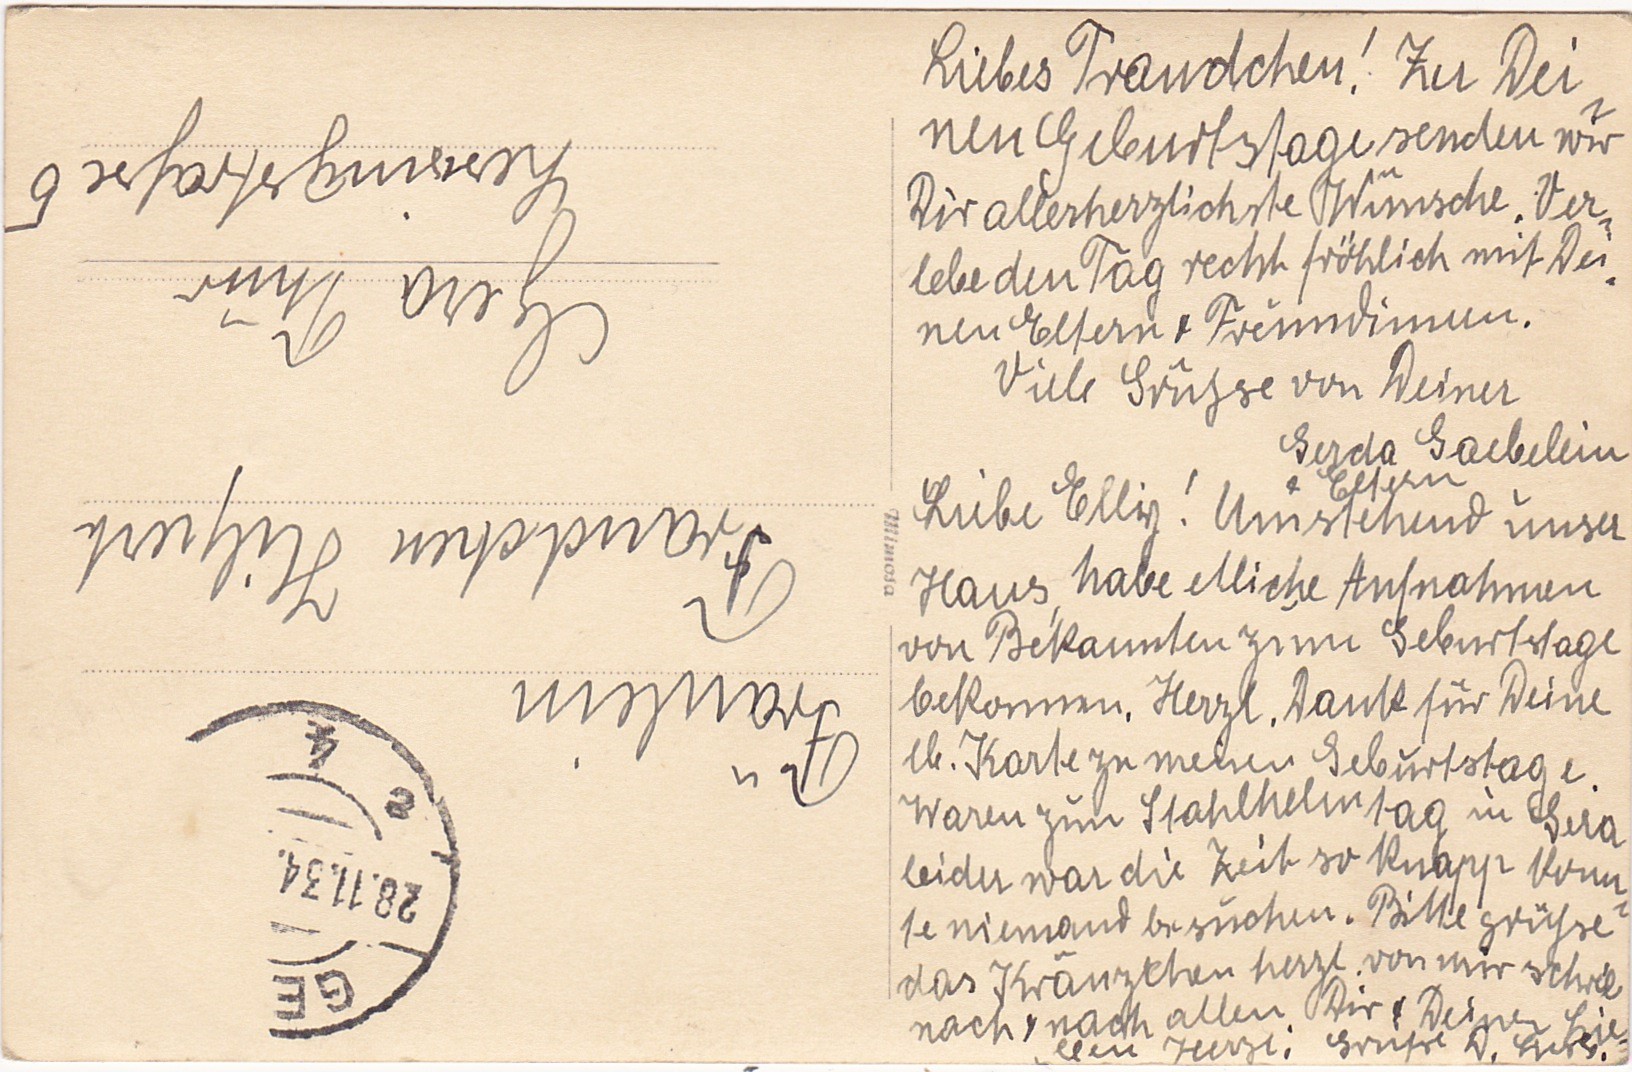 Liebes Traudchen! Zu Dei-
nen Geburtstage senden wir
Dir allerherzlichste Wünsche. Ver-
lebe den Tag recht fröhlich mit Dei-
nen Eltern & Freundinnen.
Viele Grüsse von Deiner
Gerda Gaebelein
& Eltern
Liebe Elly! Umstehend unser
Haus, habe etliche Aufnahmen
von Bekannten zum Geburtstage
bekommen. Herzl. Dank für Deine
lb. Karte zu meinen Geburtstage.
Waren zum Stahlhelmtag in Gera
leider war die Zeit so knapp konn-
te niemand besuchen. Bitte grüsse
das Kränzchen herzl. von mir schreibe
nach & nach allen Dir & Deinen Lie-
ben Herzl. Grüsse D.
Mimosa
Fräulein
Traudchen Hilpert
Gera Thür
Lessingstrasse 5
GE
28.11.34.
4